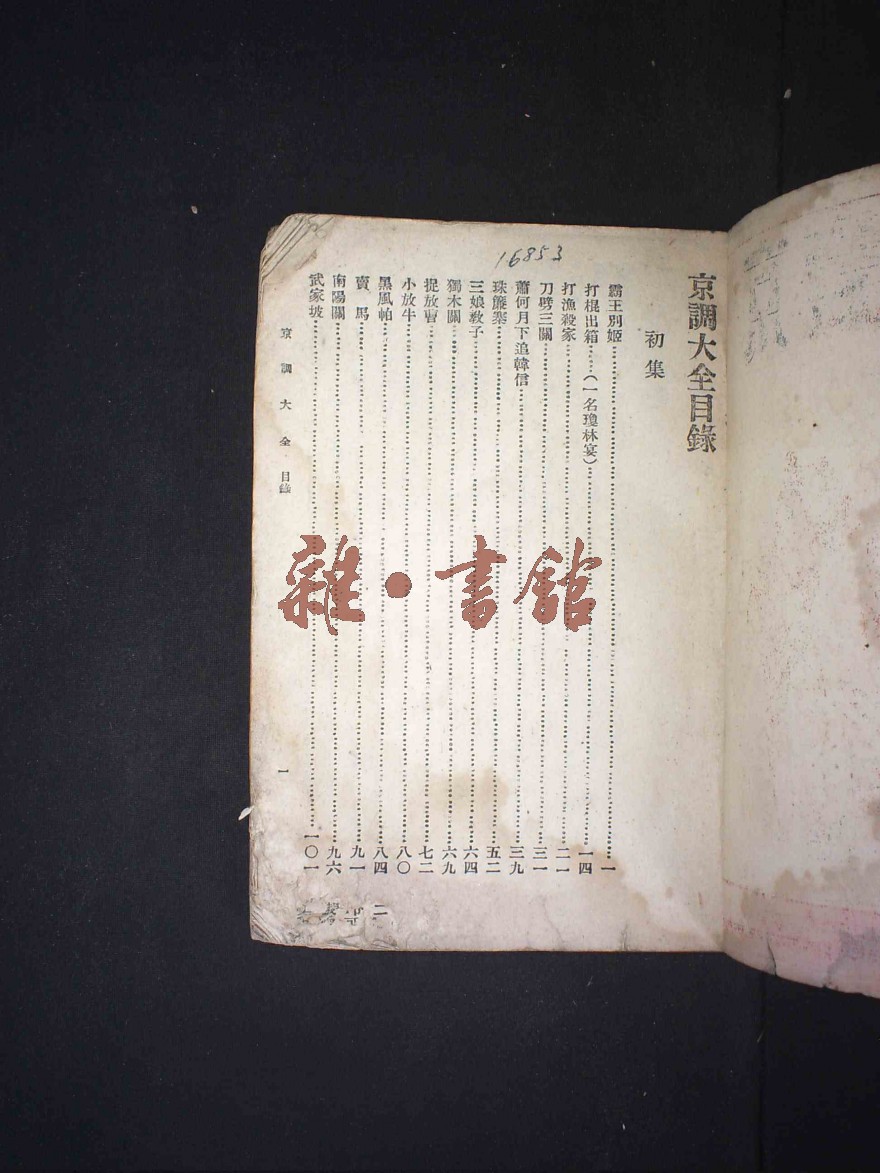 16853
京調大全目錄
初集
霸王別姬……一
打棍出箱……(一名瓊林宴)……一四
打漁殺家……二一
刀劈三關……三一
蕭何月下追韓信……三九
珠簾寨……五二
三娘教子……六四
獨木關……六九
捉放曹……七二
小放牛……八〇
黑風帕……八四
賣馬……九一
南陽關……九六
武家坡……一〇一
京調大全 目錄
一
雜·書館